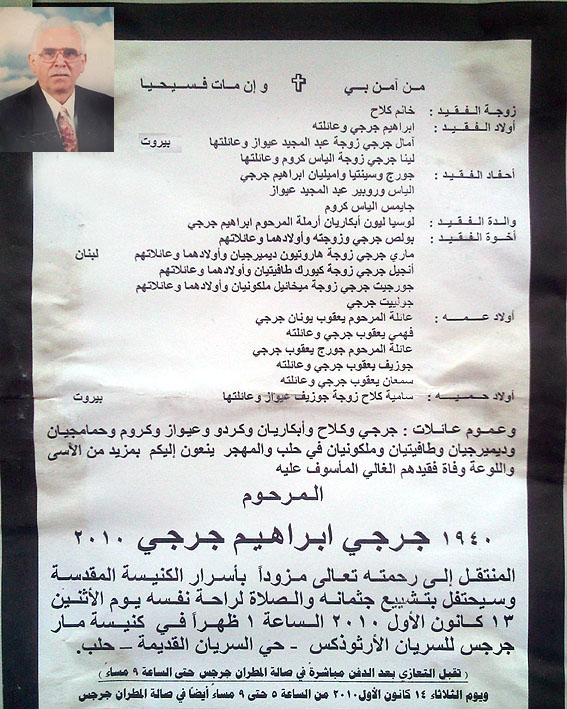 من آمن بي ✝ وإن مات فسيحيا
زوجة الفقيد : خانم كلاح
أولاد الفقيد : ابراهيم جرجي وعائلته
آمال جرجي زوجة عبد المجيد عيواز وعائلتها بيروت
لينا جرجي زوجة الياس كروم وعائلتها
أحفاد الفقيد : جورج وسينتيا واميليان ابراهيم جرجي
الياس وروبير عبد المجيد عيواز
جايمس الياس كروم
والدة الفقيد : لوسيا ليون أبكاريان أرملة المرحوم ابراهيم جرجي
أخوة الفقيد : بولص جرجي وزوجته وأولادهما وعائلاتهم
ماري جرجي زوجة هاروتيون ديميرجيان وأولادهما وعائلاتهم لبنان
أنجيل جرجي زوجة كيورك طافيتيان وأولادهما وعائلاتهم
جورجيت جرجي زوجة ميخائيل ملكونيان وأولادهما وعائلاتهم
جولييت جرجي
أولاد عمه : عائلة المرحوم يعقوب يونان جرجي
فهمي يعقوب جرجي وعائلته
عائلة المرحوم جورج يعقوب جرجي
جوزيف يعقوب جرجي وعائلته
سمعان يعقوب جرجي وعائلته
أولاد حميه : سامية كلاح زوجة جوزيف عيواز وعائلتها بيروت
وعموم عائلات : جرجي وكلاح وأبكاريان وكردو وعيواز وكروم وحمامجيان
وديميرجيان وطافيتيان وملكونيان في حلب والمهجر ينعون إليكم بمزيد من الأسى
واللوعة وفاة فقيدهم الغالي المأسوف عليه
المرحوم
١٩٤٠ جرجي ابراهيم جرجي ٢٠١٠
المنتقل إلى رحمته تعالى مزوداً بأسرار الكنيسة المقدسة
وسيحتفل بتشييع جثمانه والصلاة لراحة نفسه يوم الأثنين
١٣ كانون الأول ٢٠١٠ الساعة ١ ظهراً في كنيسة مار
جرجس للسريان الأرثوذكس - حي السريان القديمة – حلب.
( تقبل التعازي بعد الدفن مباشرة في صالة المطران جرجس حتى الساعة ٩ مساءً )
ويوم الثلاثاء ١٤ كانون الأول ٢٠١٠ من الساعة ٥ حتى ٩ مساءً أيضاً في صالة المطران جرجس